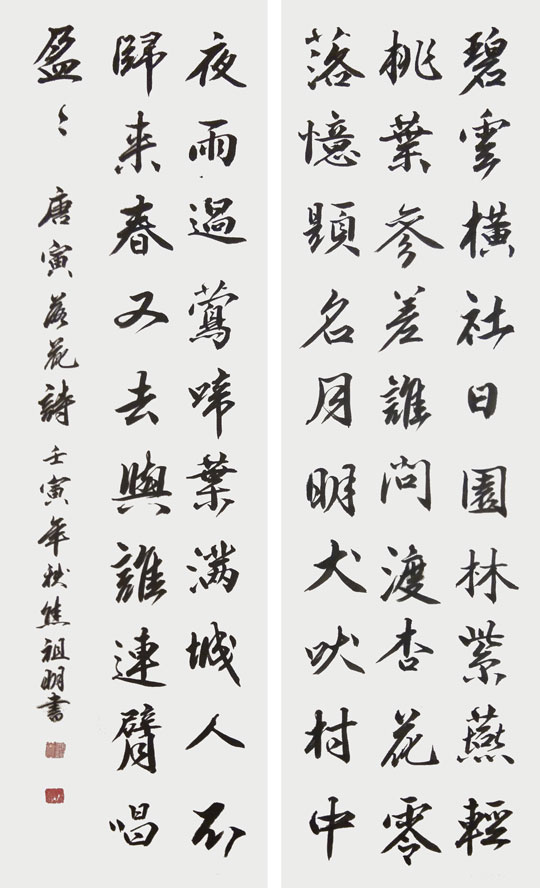 碧雲橫社日園林紫燕輕
桃葉參差誰問渡杏花零
落憶題名月明犬吠村中
夜雨過鶯啼葉滿城人不
歸来春又去與誰連臂唱
盈〻
唐寅落花詩 壬寅年秋熊祖明書